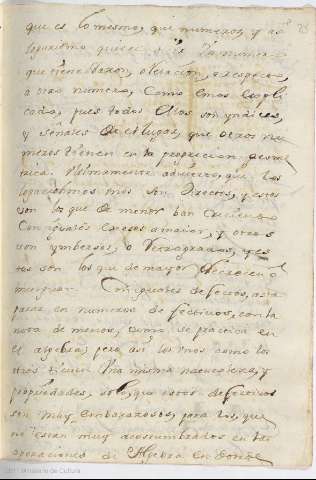 que es lo mesmo, que numeros, y as
logarithmo quiere dezir Un numero
que tiene Raxon, o Relacion, o respecto,
a otro numero, Como emos expli
cado, pues todos ellos son yndices,
y señales de el lugar, que otros nu
meros tienen en la proporcion Geome
trica. Ultimamente advierto, que los
logarithmos unos son Directos, y estos
son los que de menor ban creciendo
Con yguales excesos a maior, y otros
son ymbersos, o Retrogrados, y es
tos son los que de mayor Decrecen, o
menguan Con yguales defectos, asta
parar en numeros defectivos, con la
nota de menos, como se practica en
el algebra, pero asi los unos como los
otros tienen Una misma naturaleza, y
propiedades, solo, que estos defectivos
son muy embarazosos, para los, que
no estan muy acostumbrados en las
operaciones de Algebra en donde
Ministerio de Cultura